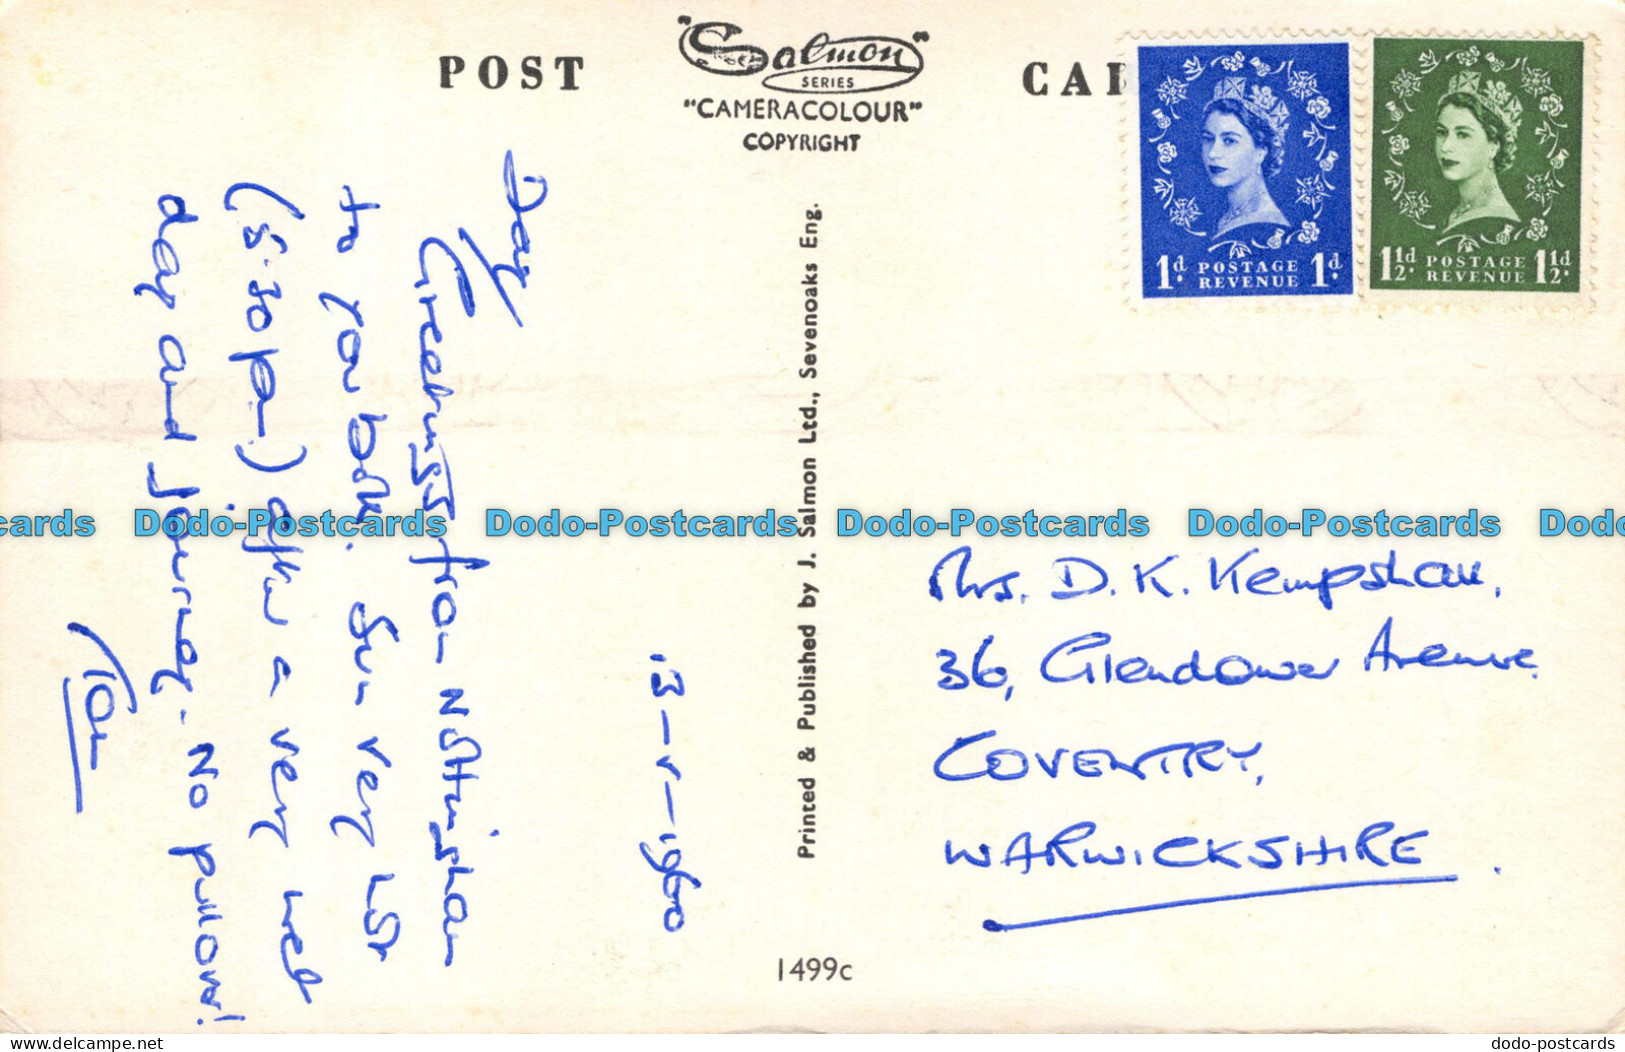 POST CAR
"Salmon"
SERIES
"CAMERACOLOUR"
COPYRIGHT
1d POSTAGE REVENUE 1d
1½d POSTAGE REVENUE 1½d
13-V-1960
Greetings from Nottingham
to you both. Sun very hot
(5.30 pm) after a very wet
day and journey. No pullover!
Ian
Printed & Published by J. Salmon Ltd., Sevenoaks Eng.
Mrs. D. K. Kempshall,
36, Glendower Avenue,
COVENTRY,
WARWICKSHIRE.
1499c
Dodo-Postcards Dodo-Postcards Dodo-Postcards Dodo-Postcards
dodo-postcards
www.delcampe.net